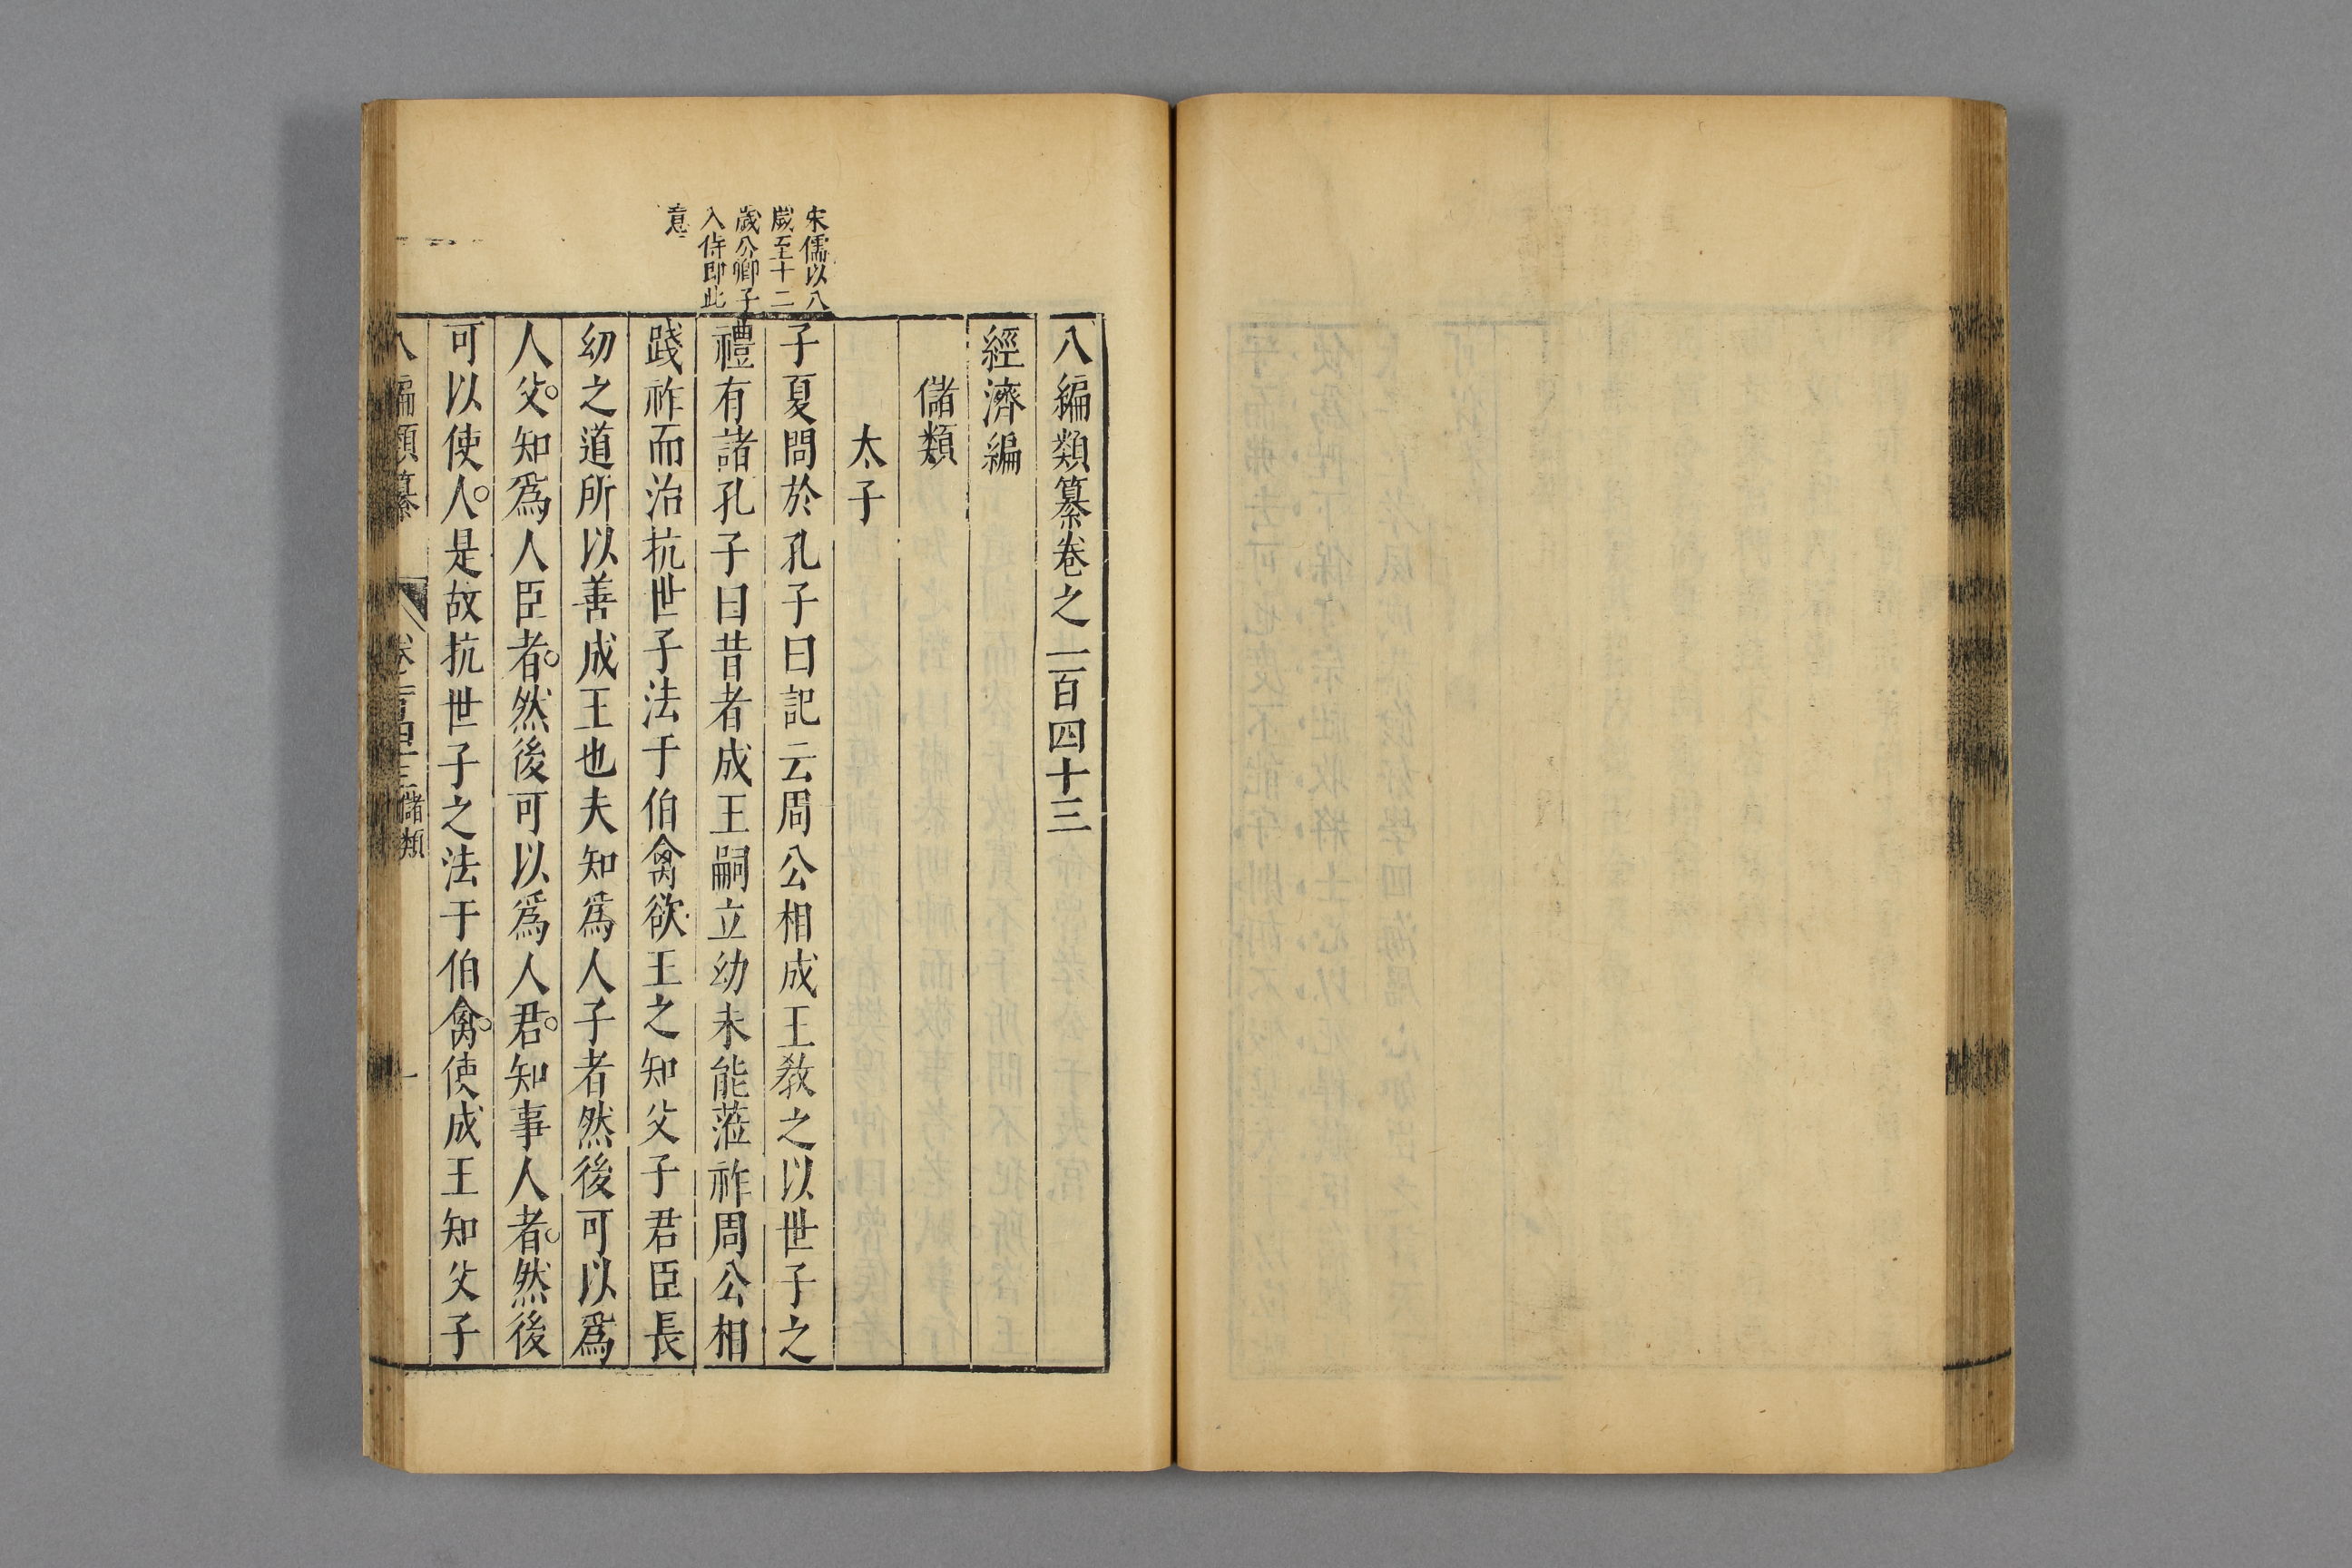 八編類纂卷之一百四十三
經濟編
儲類
太子
宋儒以八
歲至十二
歲公卿子
入侍即此
意
子夏問於孔子曰記云周公相成王教之以世子之
禮有諸孔子曰昔者成王嗣立幼未能蒞祚周公相
踐祚而治抗世子法于伯禽欲王之知父子君臣長
幼之道所以善成王也夫知爲人子者然後可以爲
人父。知爲人臣者。然後可以爲人君。知事人者。然後
可以使人。是故抗世子之法于伯禽。使成王知父子
八編類纂
卷一百四十三 儲類
一